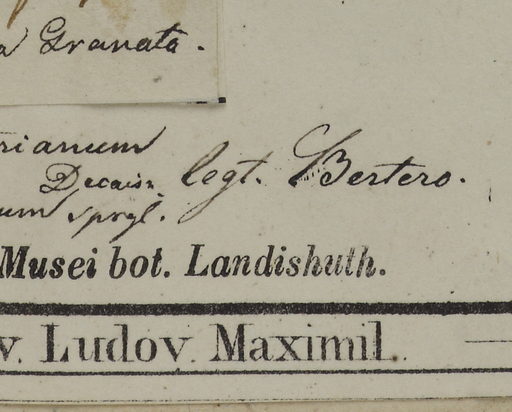 a Granata.
rianum
Decaisn. legt. Bertero.
um Sprgl.
Musei bot. Landishuth.
v. Ludov. Maximil.